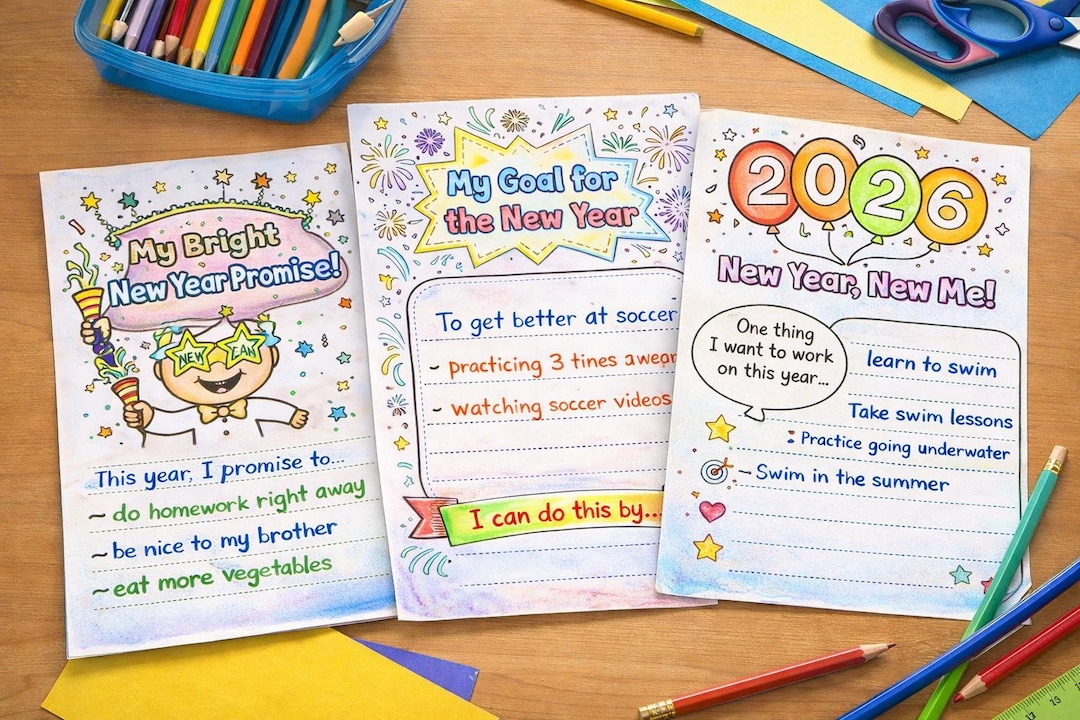 My Bright
New Year Promise!
NEW CAN
This year, I promise to...
~ do homework right away
~ be nice to my brother
~ eat more vegetables
My Goal for
the New Year
To get better at soccer
- practicing 3 tines awear
- watching soccer videos
I can do this by...
2026
New Year, New Me!
One thing
I want to work
on this year...
learn to swim
Take swim lessons
: Practice going underwater
~ Swim in the summer